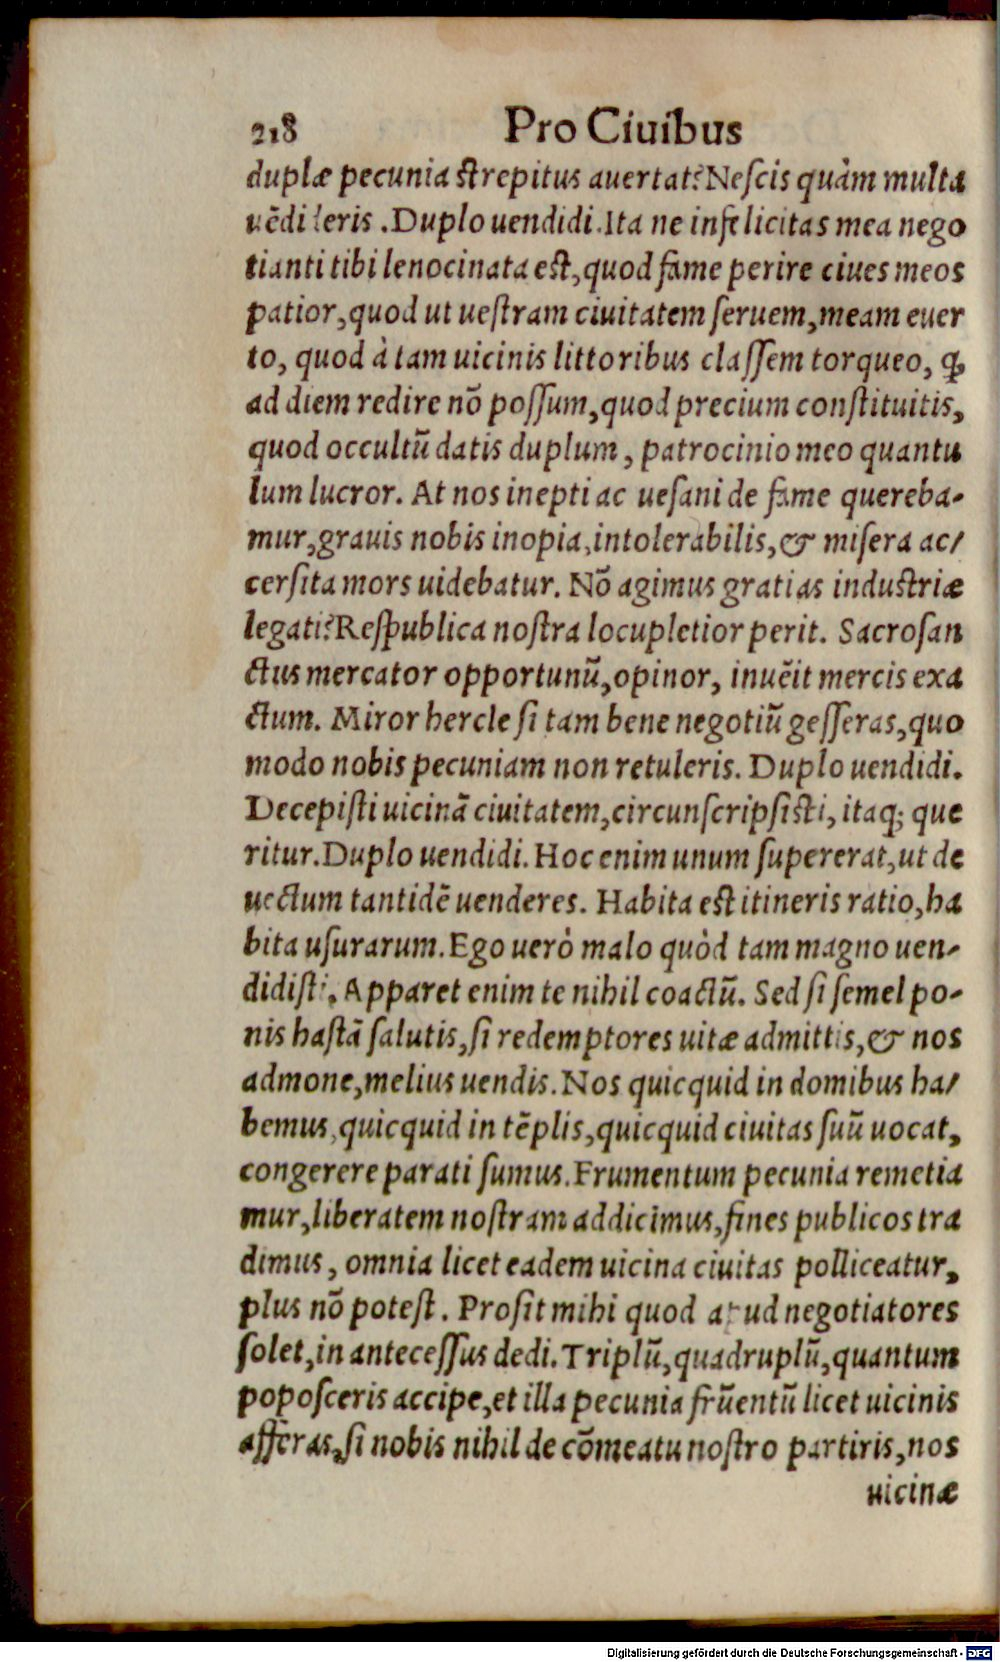 218 Pro Ciuibus
duplæ pecunia strepitus auertat? Nescis quàm multa
uẽdideris . Duplo uendidi. Ita ne infelicitas mea nego
tianti tibi lenocinata est, quod fame perire ciues meos
patior, quod ut uestram ciuitatem seruem, meam euer
to, quod à tam uicinis littoribus classem torqueo, ꝙ
ad diem redire nõ possum, quod precium constituitis,
quod occultũ datis duplum, patrocinio meo quantu
lum lucror. At nos inepti ac uesani de fame quereba-
mur, grauis nobis inopia, intolerabilis, & misera ac/
cersita mors uidebatur. Nõ agimus gratias industriæ
legati? Respublica nostra locupletior perit. Sacrosan
ctus mercator opportunũ, opinor, inuẽit mercis exa
ctum. Miror hercle si tam bene negotiũ gesseras, quo
modo nobis pecuniam non retuleris. Duplo uendidi.
Decepisti uicinã ciuitatem, circunscripsisti, itaq; que
ritur. Duplo uendidi. Hoc enim unum supererat, ut de
uectum tantidẽ uenderes. Habita est itineris ratio, ha
bita usurarum. Ego uerò malo quòd tam magno uen-
didisti. Apparet enim te nihil coactũ. Sed si semel po-
nis hastã salutis, si redemptores uitæ admittis, & nos
admone, melius uendis. Nos quicquid in domibus ha/
bemus, quicquid in tẽplis, quicquid ciuitas suũ uocat,
congerere parati sumus. Frumentum pecunia remetia
mur, liberatem nostram addicimus, fines publicos tra
dimus, omnia licet eadem uicina ciuitas polliceatur,
plus nõ potest. Prosit mihi quod apud negotiatores
solet, in antecessus dedi. Triplũ, quadruplũ, quantum
poposceris accipe, et illa pecunia frũentũ licet uicinis
afferas, si nobis nihil de cõmeatu nostro partiris, nos
uicinæ
Digitalisierung gefördert durch die Deutsche Forschungsgemeinschaft - DFG